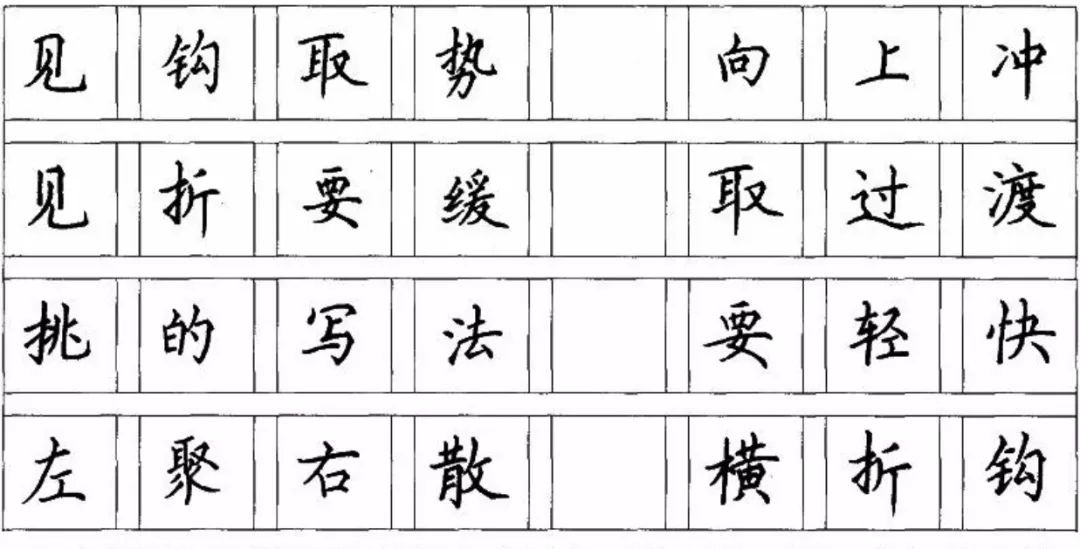 见钩取势 向上冲
见折要缓 取过渡
挑的写法 要轻快
左聚右散 横折钩